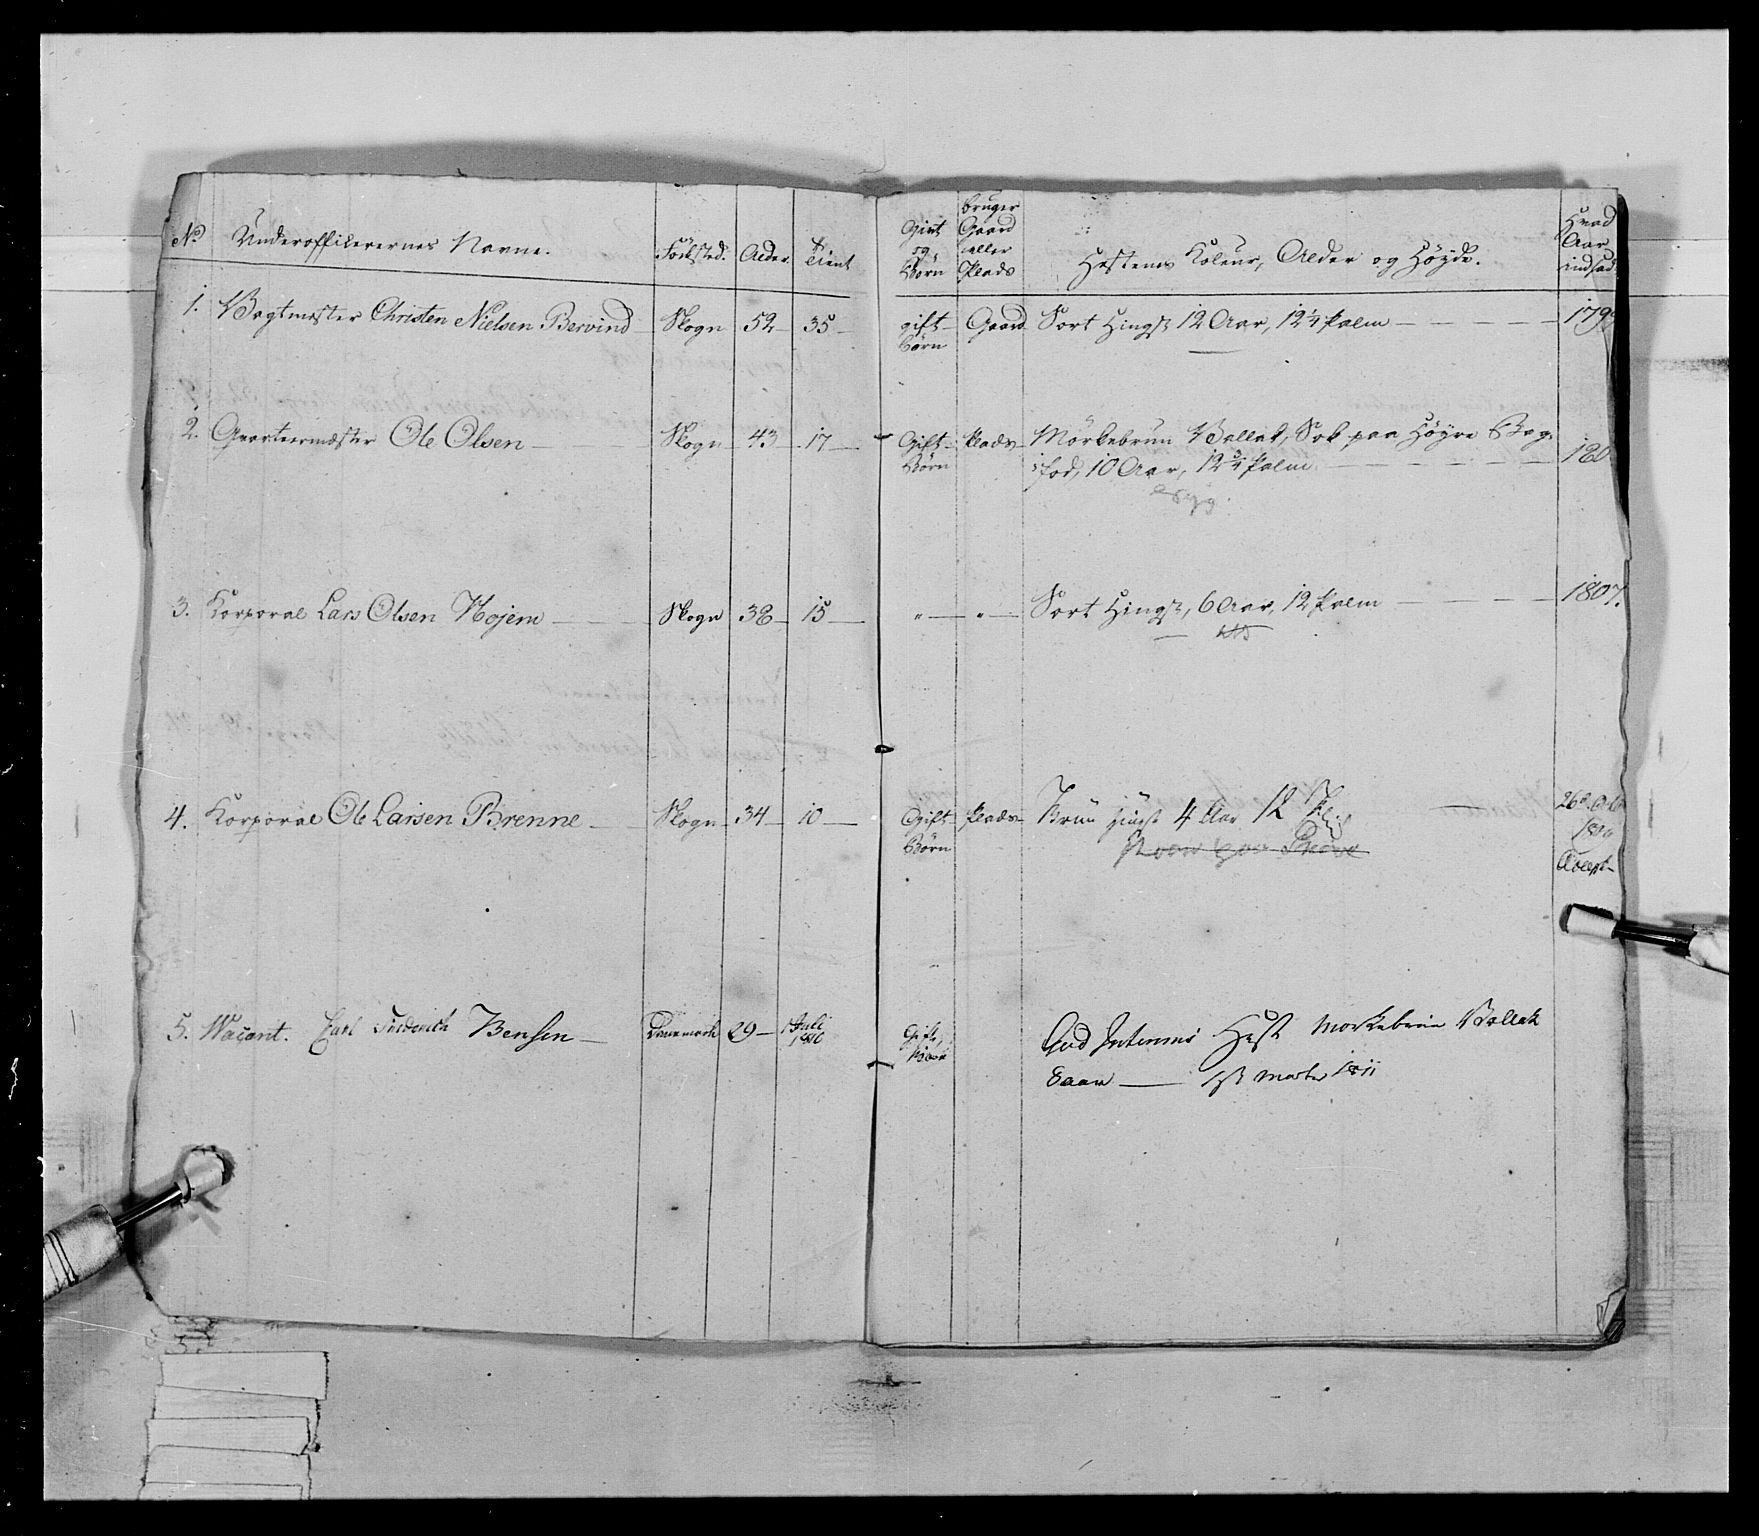 No Underofficerernes Navne. Födested. Alder. Tient Givt og Börn bruger Gaard eller Plads Hestenes Koleur, Alder og Höyde. Hvad Aar indsad
1. Vagtmester Christen Nielsen Bervind Skogn 52 35 gift Börn Gaard Sort Hingst 12 Aar, 12 1/4 Palm 179
2. Qvarteermester Ole Olsen Skogn 43 17 Gift Börn Plads Mörkebrun Vallak, Sok paa Höyre Bag
fod, 10 Aar, 12 3/4 Palm 180
3. Korporal Lars Olsen Hojem Skogn 38 15 " " Sort Hingst, 6 Aar, 12 Palm 1807.
4. Korporal Ole Larsen Brenne Skogn 34 10 Gift Börn Plads Brun Hingst 4 Aar 12 26
Accept
5. Wacant. Carl Friderich Bensen Danemark 29 1 Juli 1810 Gift, Hest Morkebrun Vallak
8 aar 1st Marts 1811